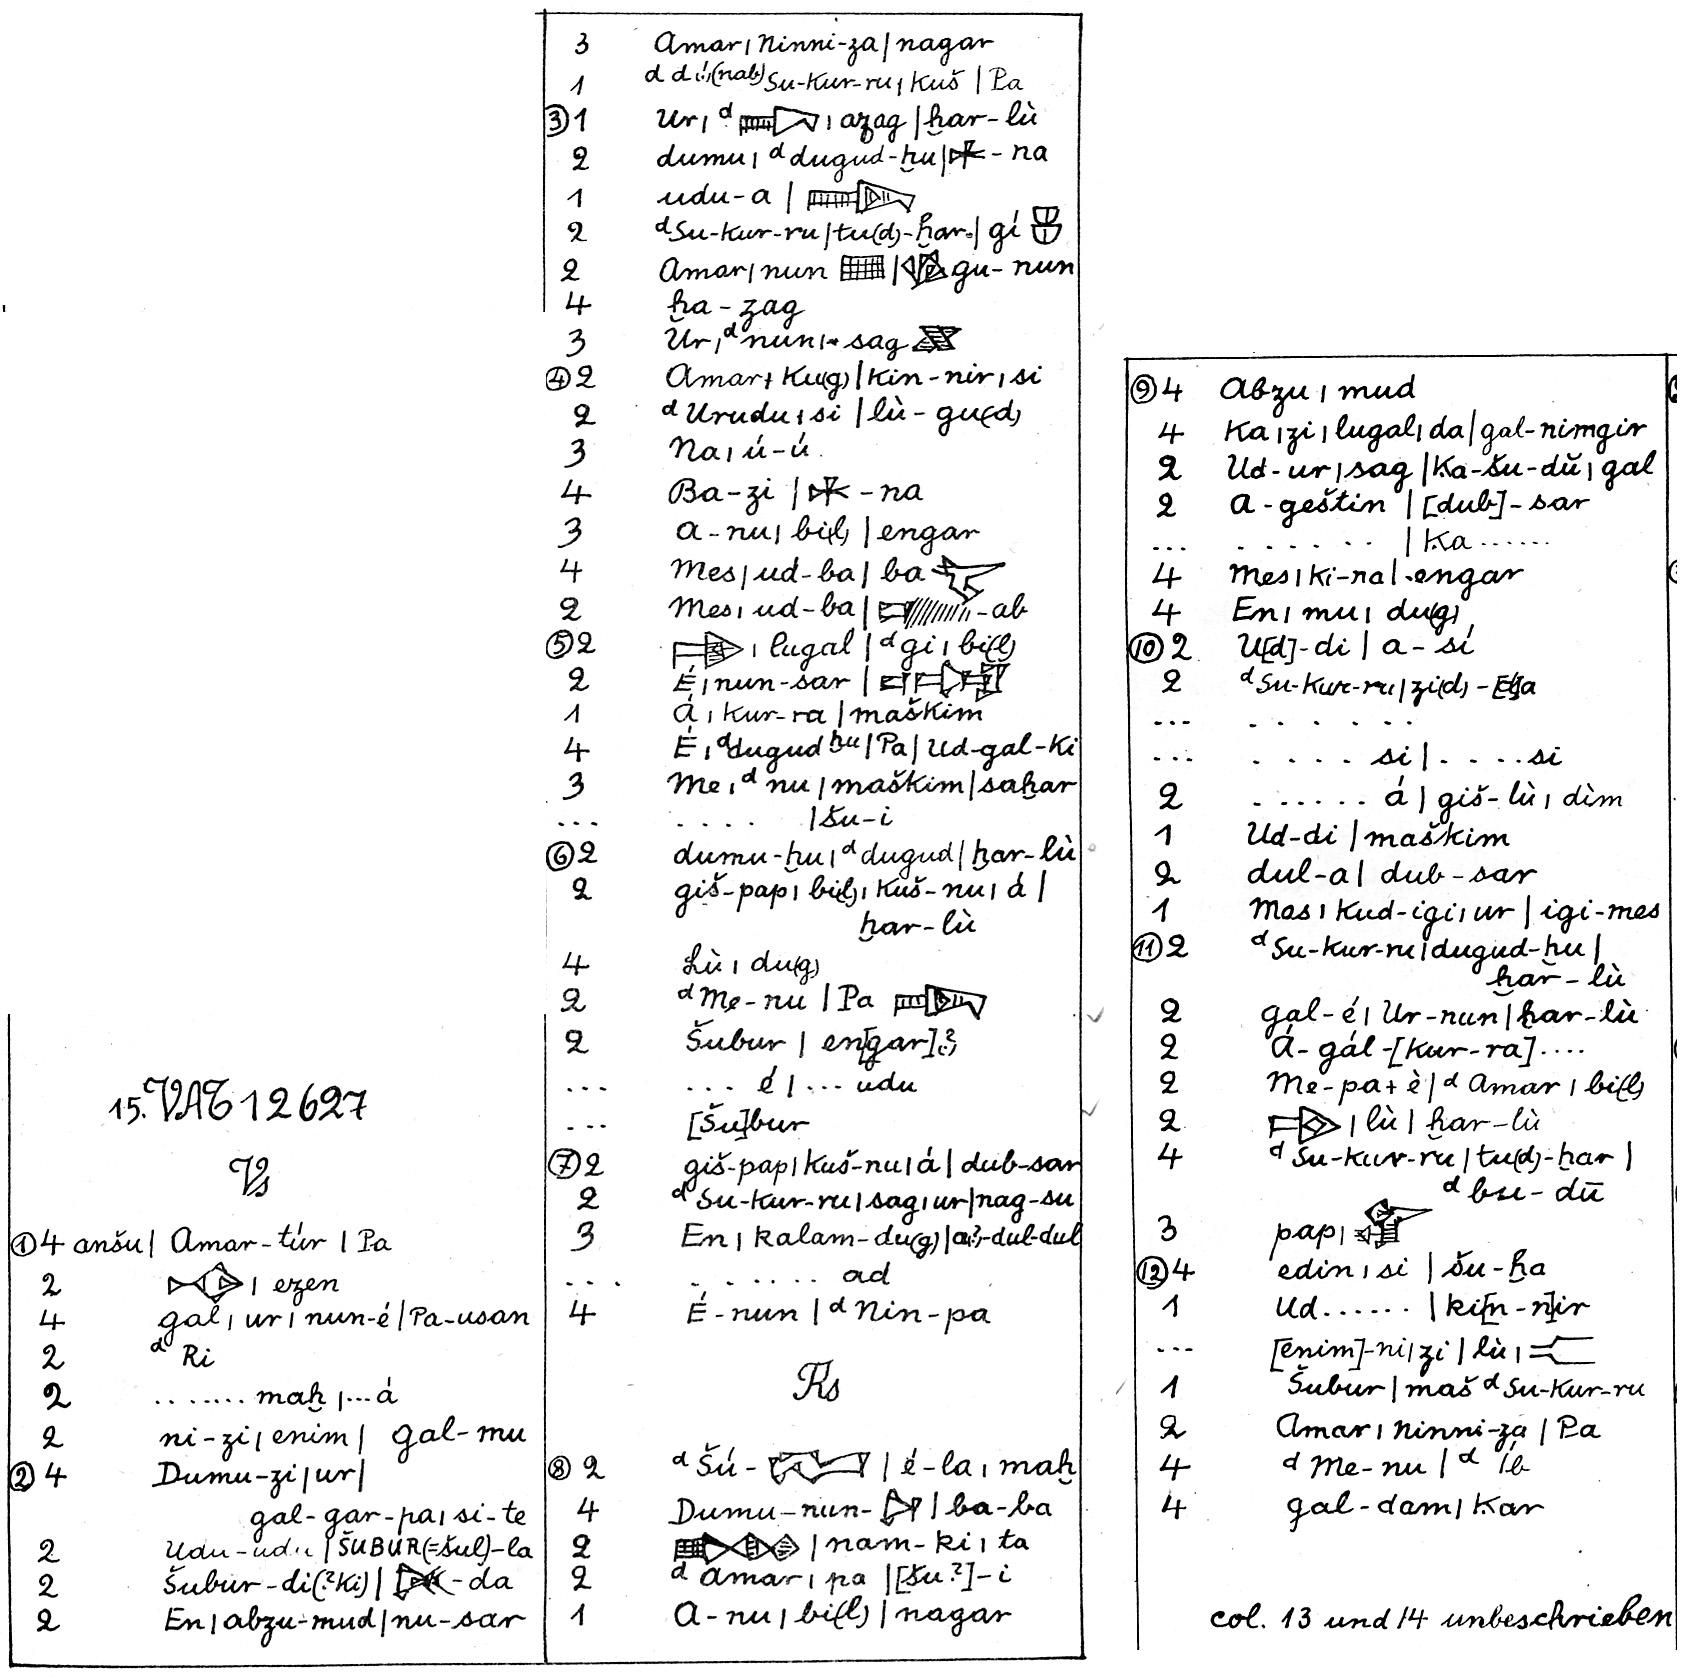 15. VAT 12627
Vs
① 4 anšu | Amar-túr | Pa
2 | ezen
4 gal, ur, nun-é | Pa-usan
2 ᵈ Ri
2 ....... maḫ |...á
2 ni-zi, enim | gal-mu
② 4 Dumu-zi, ur |
gal-gar-pa, si-te
2 Udu-udu | ŠUBUR(=Šul)-la
2 Šubur-di(?ki) | -da
2 En | abzu-mud | nu-sar
3 Amar, Ninni-za | nagar
1 ᵈ dú,(nab) Su-kur-ru, Kuš | Pa
③ 1 Ur, ᵈ , azag | ḫar-lù
2 dumu, ᵈ dugud-ḫu | -na
1 udu-a |
2 ᵈSu-kur-ru | tu(d)-ḫar | gí
2 Amar, nun | gu-nun
4 ḫa-zag
3 Ur, ᵈ nun, sag
④ 2 Amar, Ku(g) | Kin-nir, si
2 ᵈ Urudu, si | lù-gu(d)
3 Na, ú-ú
4 Ba-zi | -na
3 a-nu, bi(l) | engar
4 Mes, ud-ba | ba
2 Mes, ud-ba | -ab
⑤ 2 , lugal | ᵈ gi, bi(l)
2 É, nun-sar |
1 Á, Kur-ra | maškim
4 É, ᵈdugud ḫu | Pa | Ud-gal-Ki
3 Me, ᵈ nu | maškim | saḫar
... .... | šu-i
⑥ 2 dumu-ḫu, ᵈ dugud | ḫar-lù
2 giš-pap, bi(l), Kuš-nu, á |
ḫar-lù
4 Lù, du(g)
2 ᵈ Me-nu | Pa
2 Šubur | en[gar]?
... ... é | ... udu
... [Šu]bur
⑦ 2 giš-pap, Kuš-nu, á | dub-sar
2 ᵈ Su-kur-ru, sag, ur | nag-su
3 En, Kalam-du(g) | a?-dul-dul
.... ...... ad
4 É-nun | ᵈ Nin-pa
Rs
⑧ 2 ᵈ Šú- | é-la, maḫ
4 Dumu-nun- | ba-ba
2 | nam-ki, ta
2 ᵈ amar, pa | [šu?]-i
1 A-nu, bi(l) | nagar
⑨ 4 Abzu, mud
4 Ka, zi, lugal, da | gal-nimgir
2 Ud-ur, sag | Ka-šu-dŭ, gal
2 A-geštin | [dub]-sar
... ...... | Ka......
4 Mes, Ki-na | engar
4 En, mu, du(g)
⑩ 2 U[d]-di | a-si
2 ᵈ Su-kur-ru | zi(d)-
... ......
... .... si | ....si
2 ...... á | giš-lù, dìm
1 Ud-di | maškim
2 dul-a | dub-sar
1 Mas, Kud-igi, ur | igi-mes
⑪ 2 ᵈ Su-kur-ru, dugud-ḫu |
ḫar-lù
2 gal-é, Ur-nun | ḫar-lù
2 Á-gál-[Kur-ra]....
2 Me-pa+è | ᵈ Amar, bi(l)
2 , lù | ḫar-lù
4 ᵈ Su-kur-ru | tu(d)-ḫar |
ᵈ bu-dū
3 pap,
⑫ 4 edin, si | šu-ḫa
1 Ud...... | ki[n-n]ir
... [enim]-ni, zi | lù,
1 Šubur | maš ᵈ Su-Kur-ru
2 Amar, Ninni-za | Pa
4 ᵈ Me-nu | ᵈ íb
4 gal-dam, Kar
col. 13 und 14 unbeschrieben